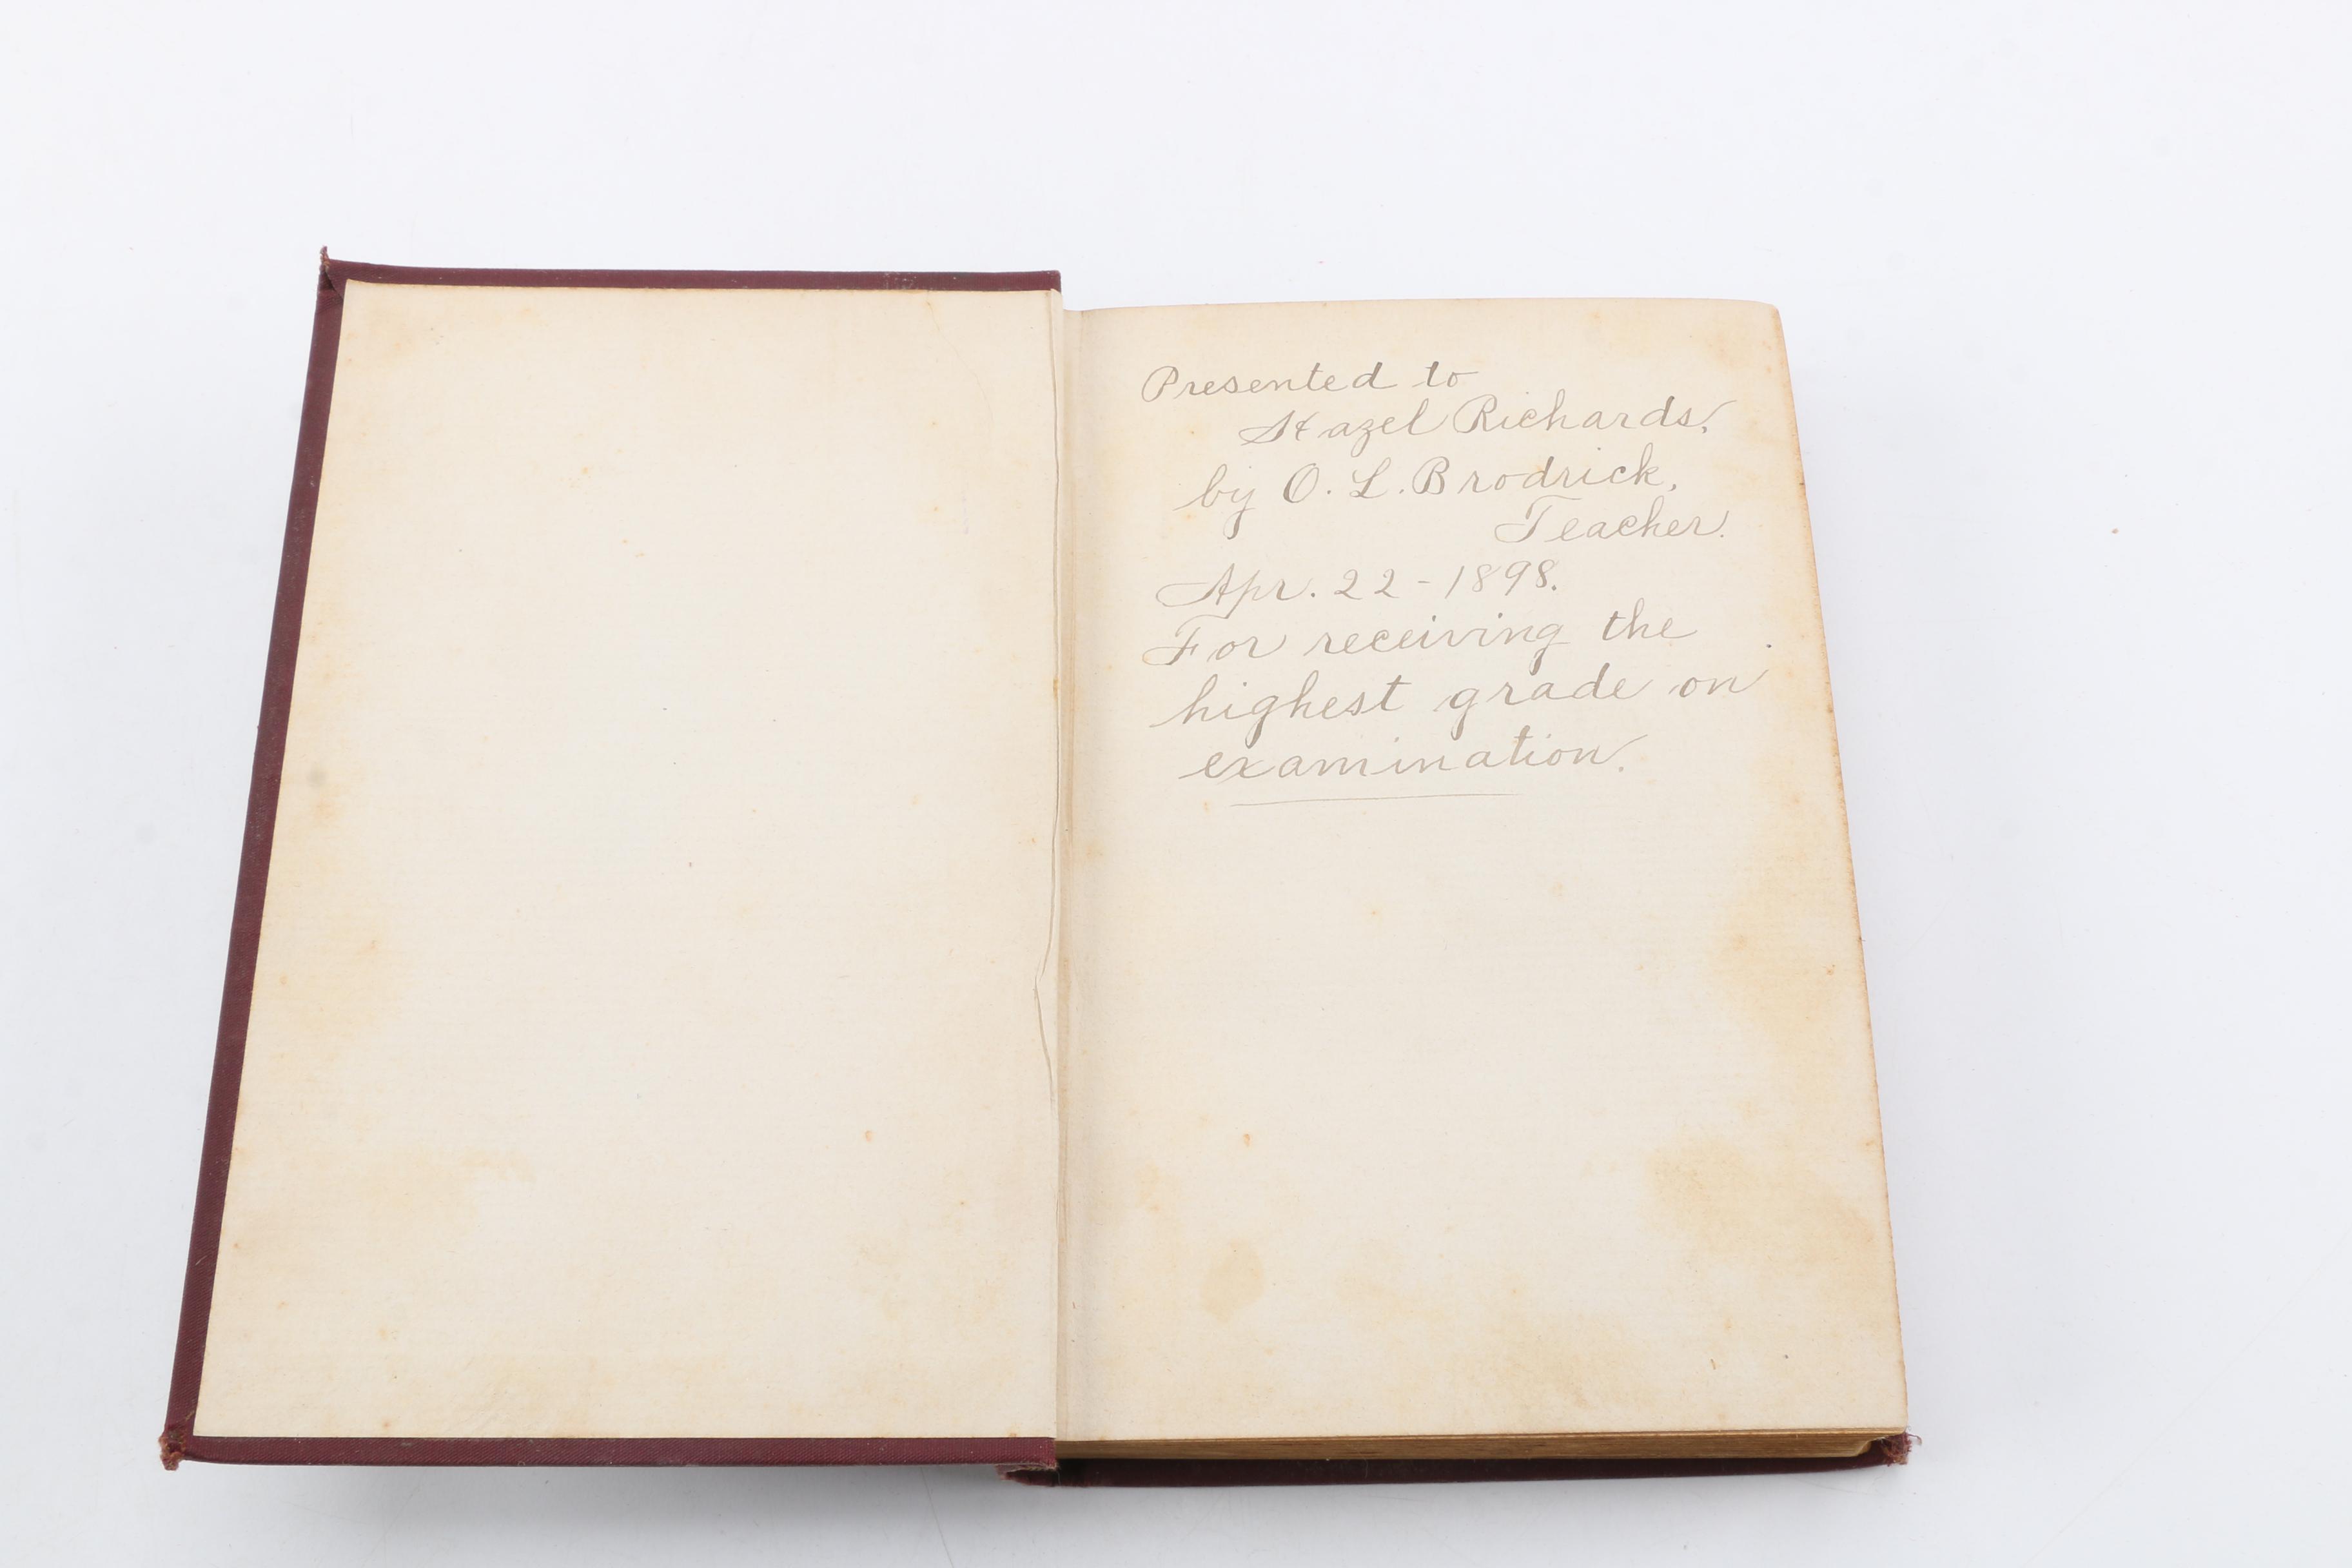 Presented to
Hazel Richards,
by O. L. Brodrick,
Teacher.
Apr. 22-1898.
For receiving the
highest grade on
examination.